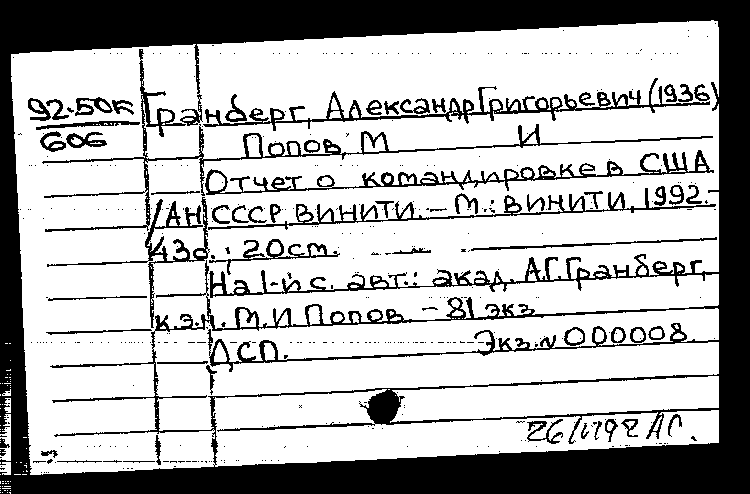 92-50к Гранберг, Александр Григорьевич (1936)
606
Попов, М И
Отчет о командировке в США
/АН СССР, ВИНИТИ. – М.: ВИНИТИ, 1992.-
43с.; 20см.
На 1-й с. авт.: акад. А.Г. Гранберг,
к.э.н. М.И Попов. – 81 экз
ДСП. Экз. N 000008.